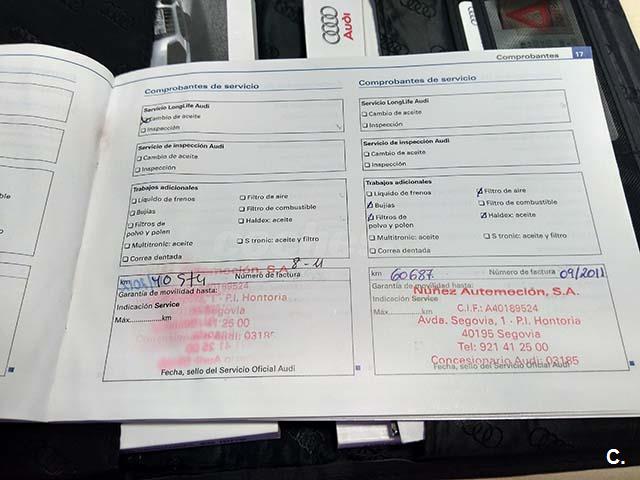 Audi
Comprobantes 17
Comprobantes de servicio
Servicio LongLife Audi
Cambio de aceite
Inspección
Servicio de inspección Audi
Cambio de aceite
Inspección
Trabajos adicionales
Líquido de frenos
Filtro de aire
Bujías
Filtro de combustible
Filtros de
polvo y polen
Haldex: aceite
Multitronic: aceite
S tronic: aceite y filtro
Correa dentada
8-11
km
Número de factura
Garantía de movilidad hasta:
Indicación Service
Máx. km
1 - P.I. Hontoria
Segovia
41 25 00
Audi: 03185
Fecha, sello del Servicio Oficial Audi
Comprobantes de servicio
Servicio LongLife Audi
Cambio de aceite
Inspección
Servicio de inspección Audi
Cambio de aceite
Inspección
Trabajos adicionales
Líquido de frenos
Filtro de aire
Bujías
Filtro de combustible
Filtros de
polvo y polen
Haldex: aceite
Multitronic: aceite
S tronic: aceite y filtro
Correa dentada
km 60687 Número de factura 09/2011
Garantía de movilidad hasta:
Núñez Automoción, S.A.
Indicación Service
C.I.F.: A40189524
Máx. km
Avda. Segovia, 1 - P.I. Hontoria
40195 Segovia
Tel: 921 41 25 00
Concesionario Audi: 03185
Fecha, sello del Servicio Oficial Audi
C.